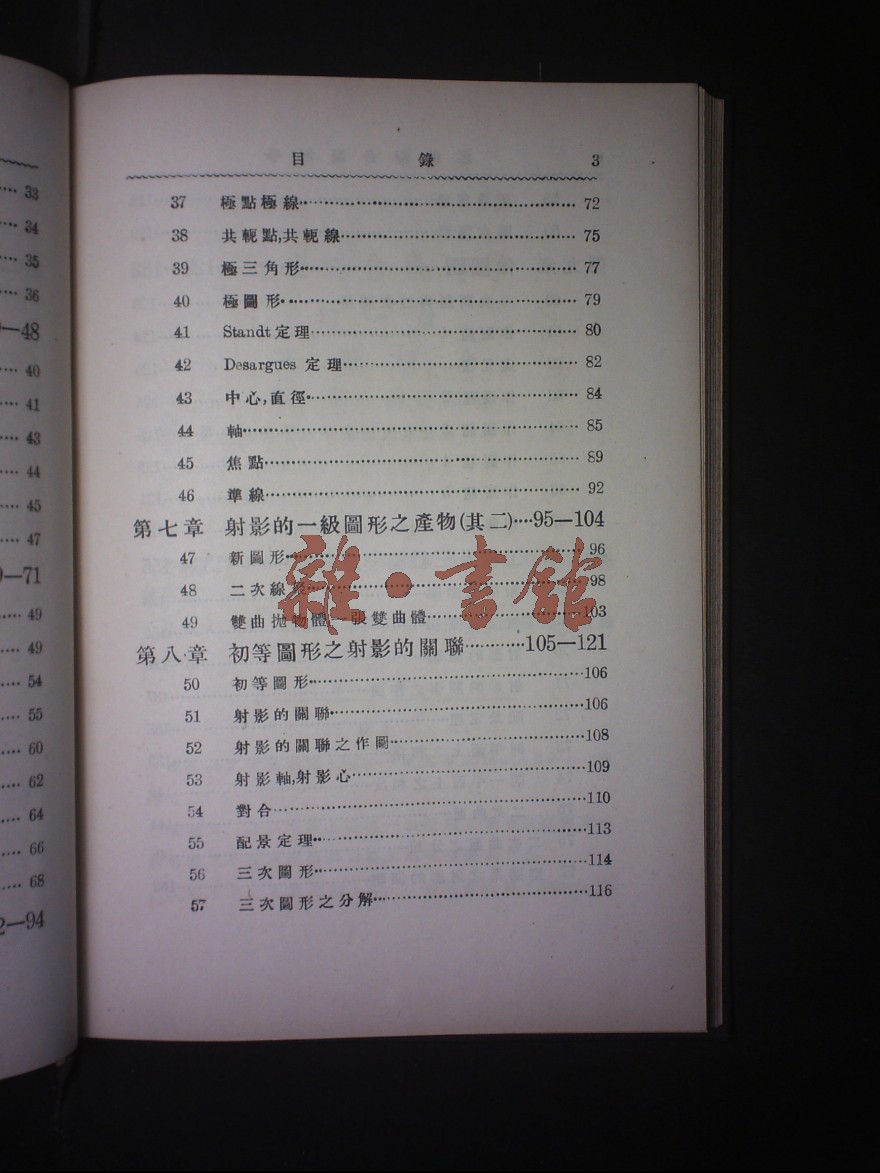 目錄 3
37 極點極線 72
38 共軛點,共軛線 75
39 極三角形 77
40 極圖形 79
41 Standt定理 80
42 Desargues 定理 82
43 中心,直徑 84
44 軸 85
45 焦點 89
46 準線 92
第七章 射影的一級圖形之產物(其二) 95—104
47 新圖形 96
48 二次線 98
49 雙曲拋物體,一張雙曲體 103
第八章 初等圖形之射影的關聯 105—121
50 初等圖形 106
51 射影的關聯 106
52 射影的關聯之作圖 108
53 射影軸,射影心 109
54 對合 110
55 配景定理 113
56 三次圖形 114
57 三次圖形之分解 116
雜·書館
33
34
35
36
—48
40
41
43
44
45
47
—71
49
49
54
55
60
62
64
66
68
2—94